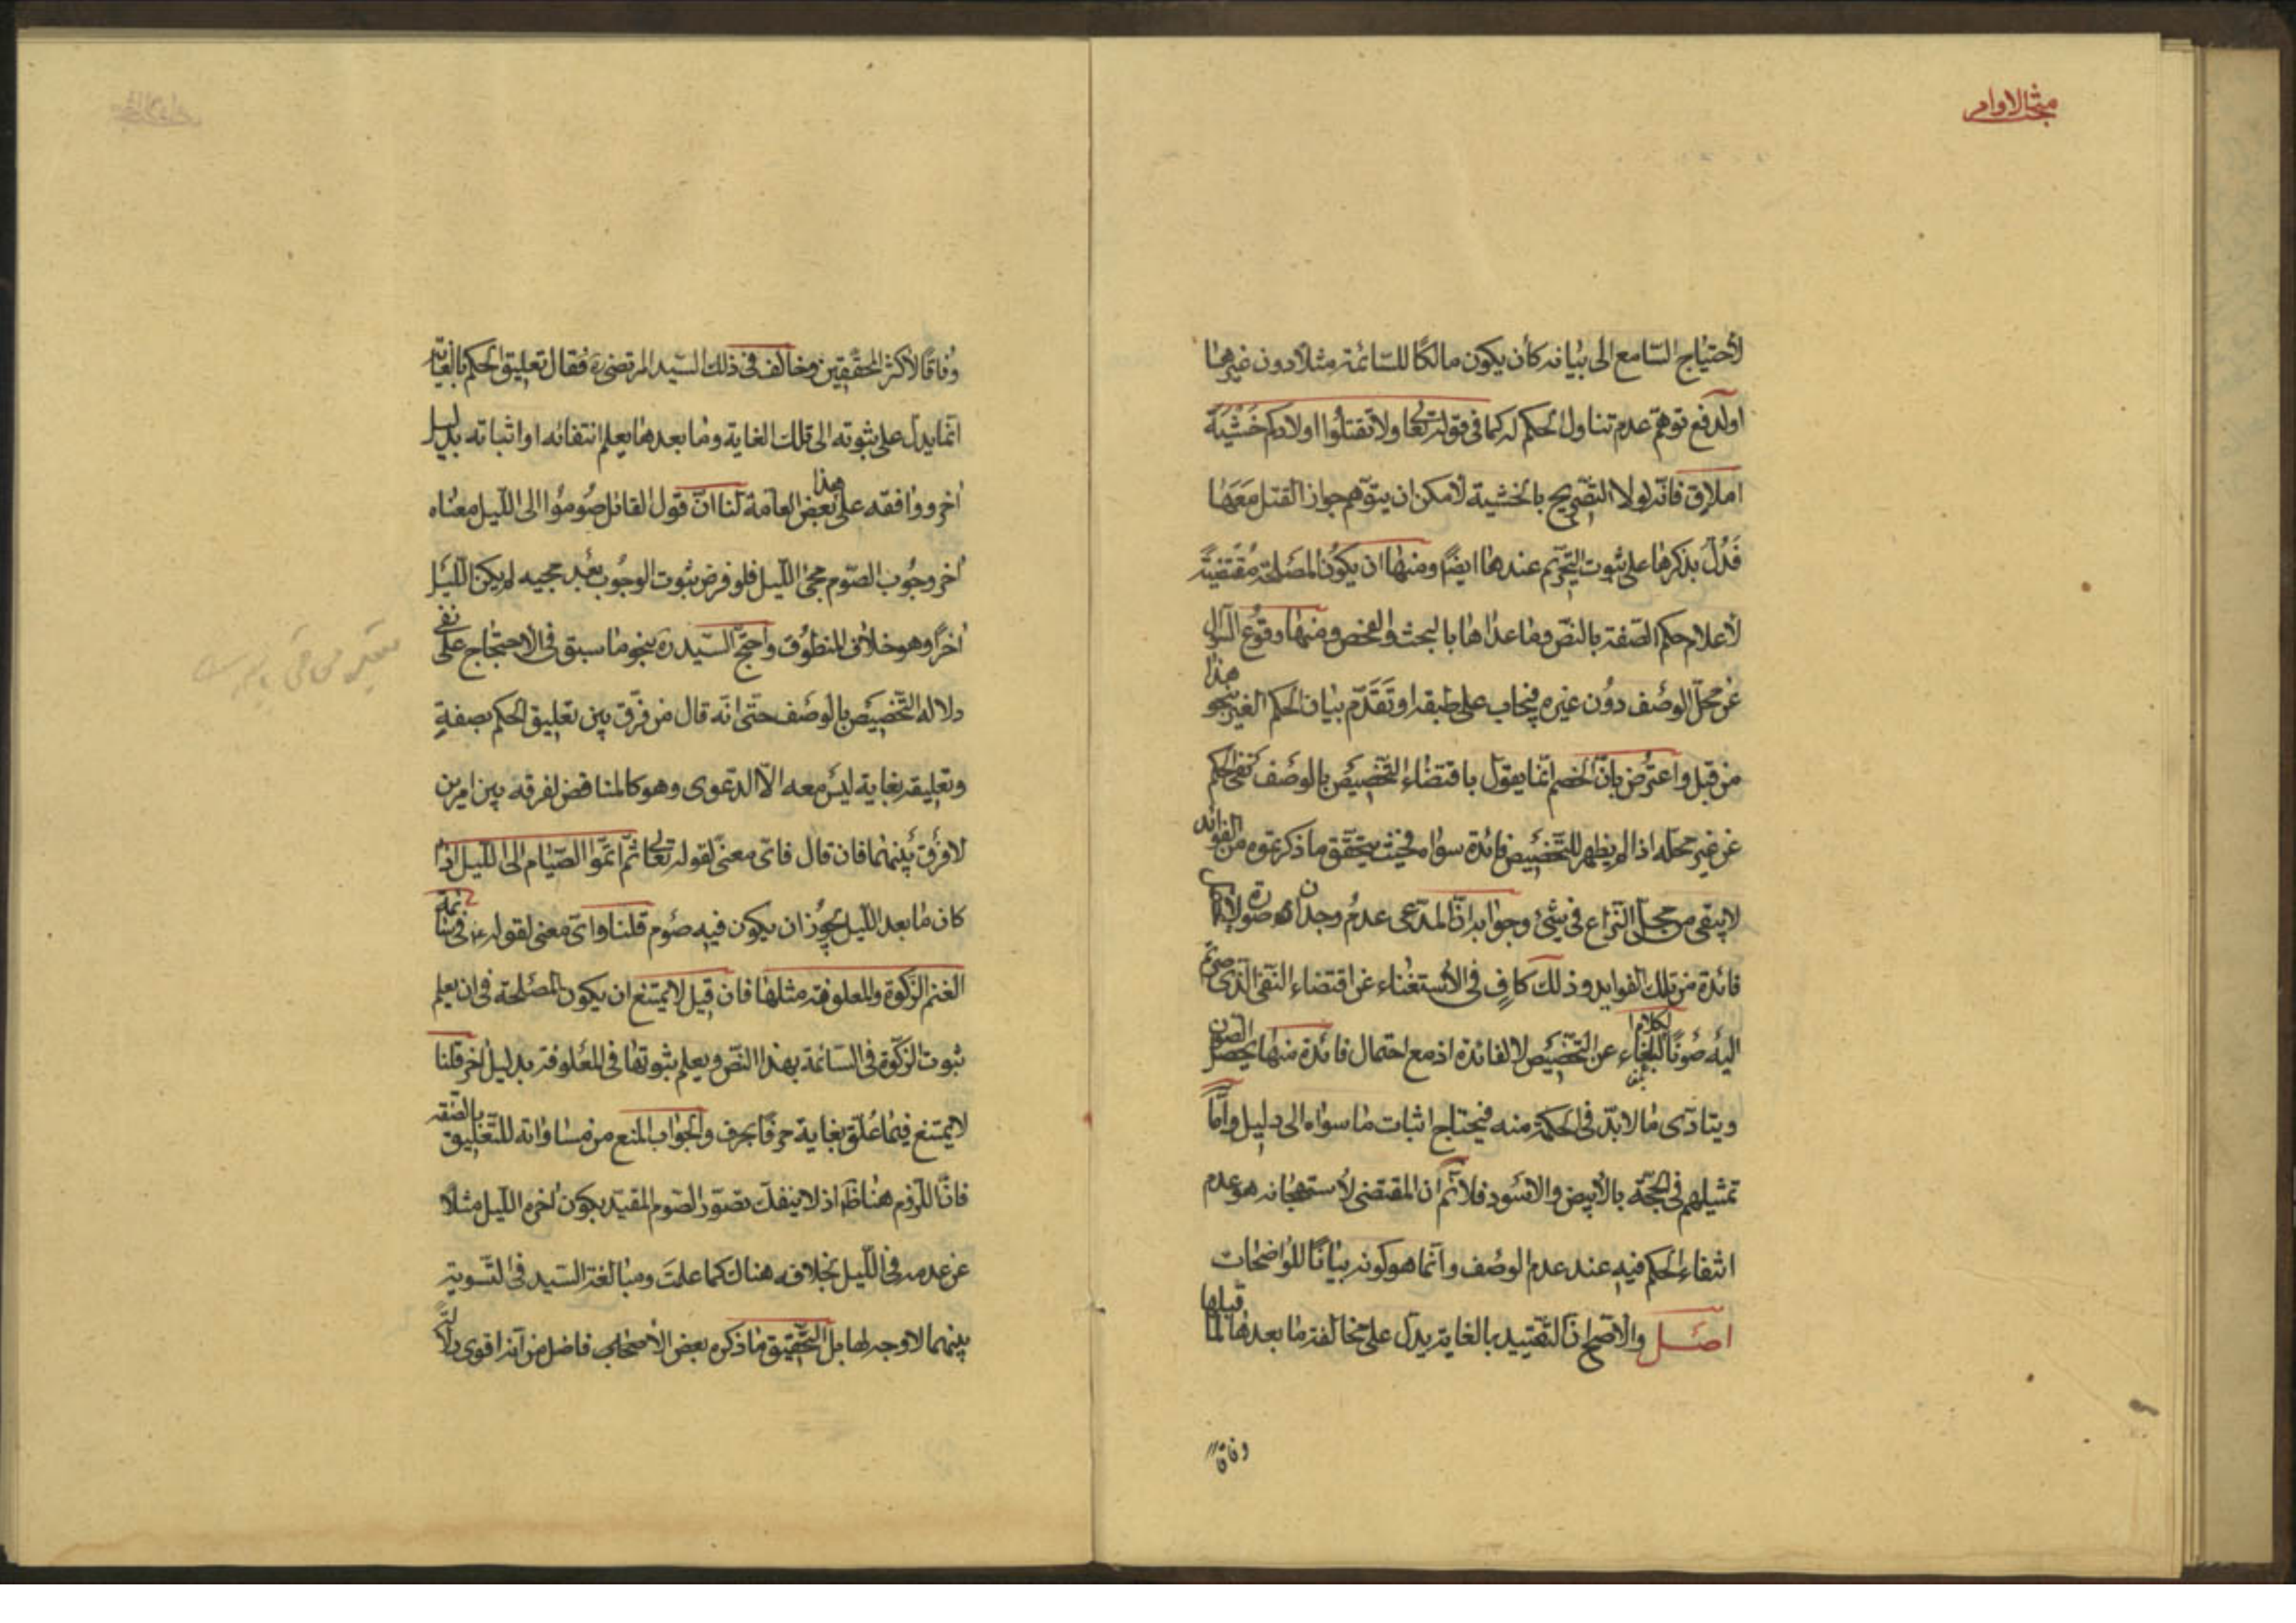 مبحث الاوامر
لاحتياج السّامع الى بيانه كأن يكون مالكًا للسّائمة مثلا دون غيرها
او لدفع توهّم عدم تناول الحكم له كما في قوله تعالى ولا تقتلوا اولادكم خشية
املاق فانّه لولا التّصريح بالخشية لامكن ان يتوّهم جواز القتل معها
فدلّ بذكرها على ثبوت التّحريم عندها ايضًا ومنها ان يكون المصلحة مقتضية
لاعلام حكم الصّفة بالنصّ وما عداها بالبحث والفحص ومنها وقوع السّؤال
عن محلّ الوصف دون غيره فيجاب على طبقه او تقدّم بيان الحكم الغير بنحو هذا
من قبل واعترض بانّ الخصم انّما يقول باقتضاء التّخصيص بالوصف نفى الحكم
عن غير محلّه اذا لم يظهر للتّخصيص فائدة سواه فحيث يتحقّق ما ذكرتموه من الفوائد
لا يبقى من محلّ النّزاع في شيئ وجوابه انّ المدّعى عدم وجدان صورة لا يحتمل
فائدة من تلك الفوايد وذلك كاف في الاستغناء عن اقتضاء النّفي الّذي صرتم
اليه صونًا لكلام البلغاء عن التّخصيص لا لفائدة اذ مع احتمال فائدة منها يحصل الصّون
ويتادّى ما لا بدّ في الحكمة منه فيحتاج اثبات ما سواه الى دليل وامّا
تمثيلهم في الحجّة بالابيض والاسود فلا نم انّ المقتضى لاستهجانه هو عدم
انتفاء الحكم فيه عند عدم الوصف وانّما هو كونه بيانًا للواضحات
اصل والاصحّ انّ التّقييد بالغاية يدلّ على مخالفة ما بعدها لما قبلها
وفاقا
وفاقًا لاكثر المحقّقين وخالف في ذلك السّيد المرتضى ره فقال تعليق الحكم بالغاية
انّما يدلّ على ثبوته الى تلك الغاية وما بعدها يعلم انتفائه او اثباته بدليل
اخر ووافقه على هذا بعض العامّة لنا انّ قول القائل صوموا الى اللّيل معناه
اخر وجوب الصّوم مجئ اللّيل فلو فرض ثبوت الوجوب بعد مجيه لم يكن اللّيل
اخرًا وهو خلاف المنطوق واحتجّ السّيد ره بنحو ما سبق في الاحتجاج على نفى
دلاله التّخصيص بالوصف حتّى انّه قال من فرّق بين تعليق الحكم بصفة
وتعليقه بغاية ليس معه الّا الدّعوى وهو كالمناقض لفرقه بين امرين
لا فرق بينهما فان قال فاىّ معنى لقوله تعالى ثمّ اتمّوا الصّيام الى اللّيل اذا
كان ما بعد اللّيل يجوز ان يكون فيه صوم قلنا واىّ معنى لقوله ع في سائمة
الغنم الزّكوة والمعلوفة مثلها فان قيل لا يمتنع ان يكون المصلحة في ان يعلم
ثبوت الزّكوة في السّائمة بهذا النّصّ ويعلم ثبوتها في المعلوفة بدليل اخر قلنا
لا يمتنع فيما علّق بغاية حرفًا بحرف والجواب المنع من مساواته للتّعليق بالصّفة
فانّ اللّزوم هنا ظ اذ لا ينفكّ تصوّر الصّوم المقيّد بكون اخره اللّيل مثلًا
عن عدمه في اللّيل بخلافه هناك كما علمت ومبالغة السّيد في التّسوية
بينهما لا وجه لها بل التّحقيق ما ذكره بعض الافاضل من انّه اقوى دلالة